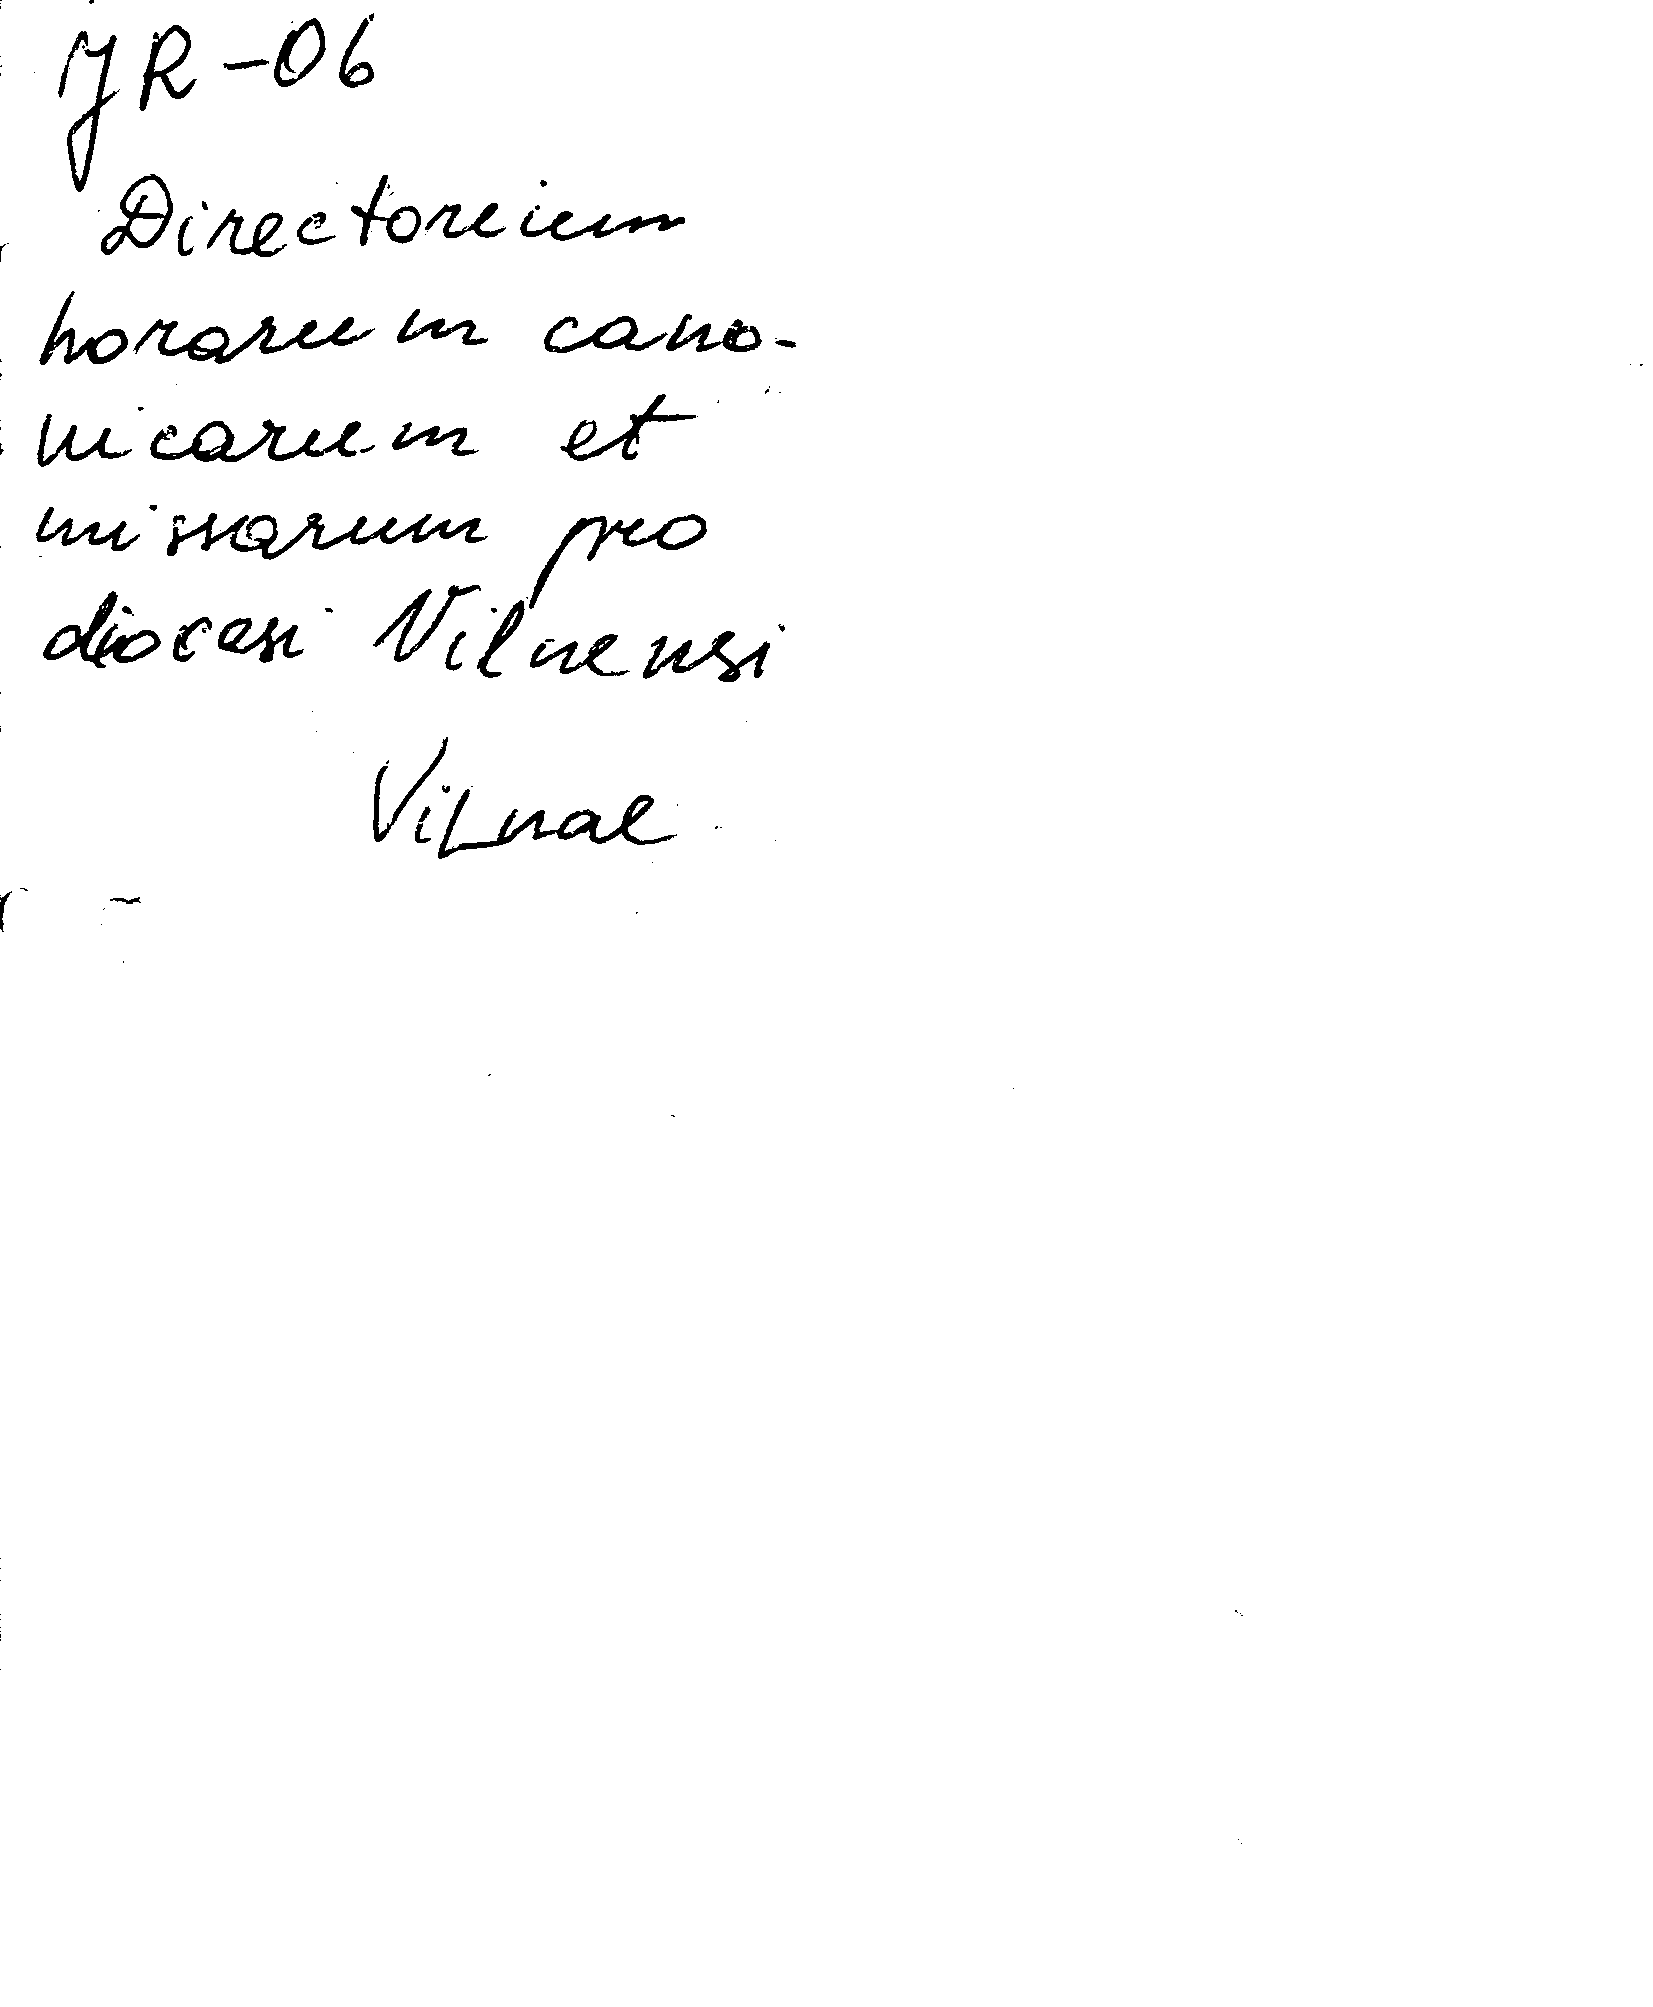 JR-06
Directorium
horarum cano-
nicarum et
missarum pro
diocesi Vilnensi
Vilnae